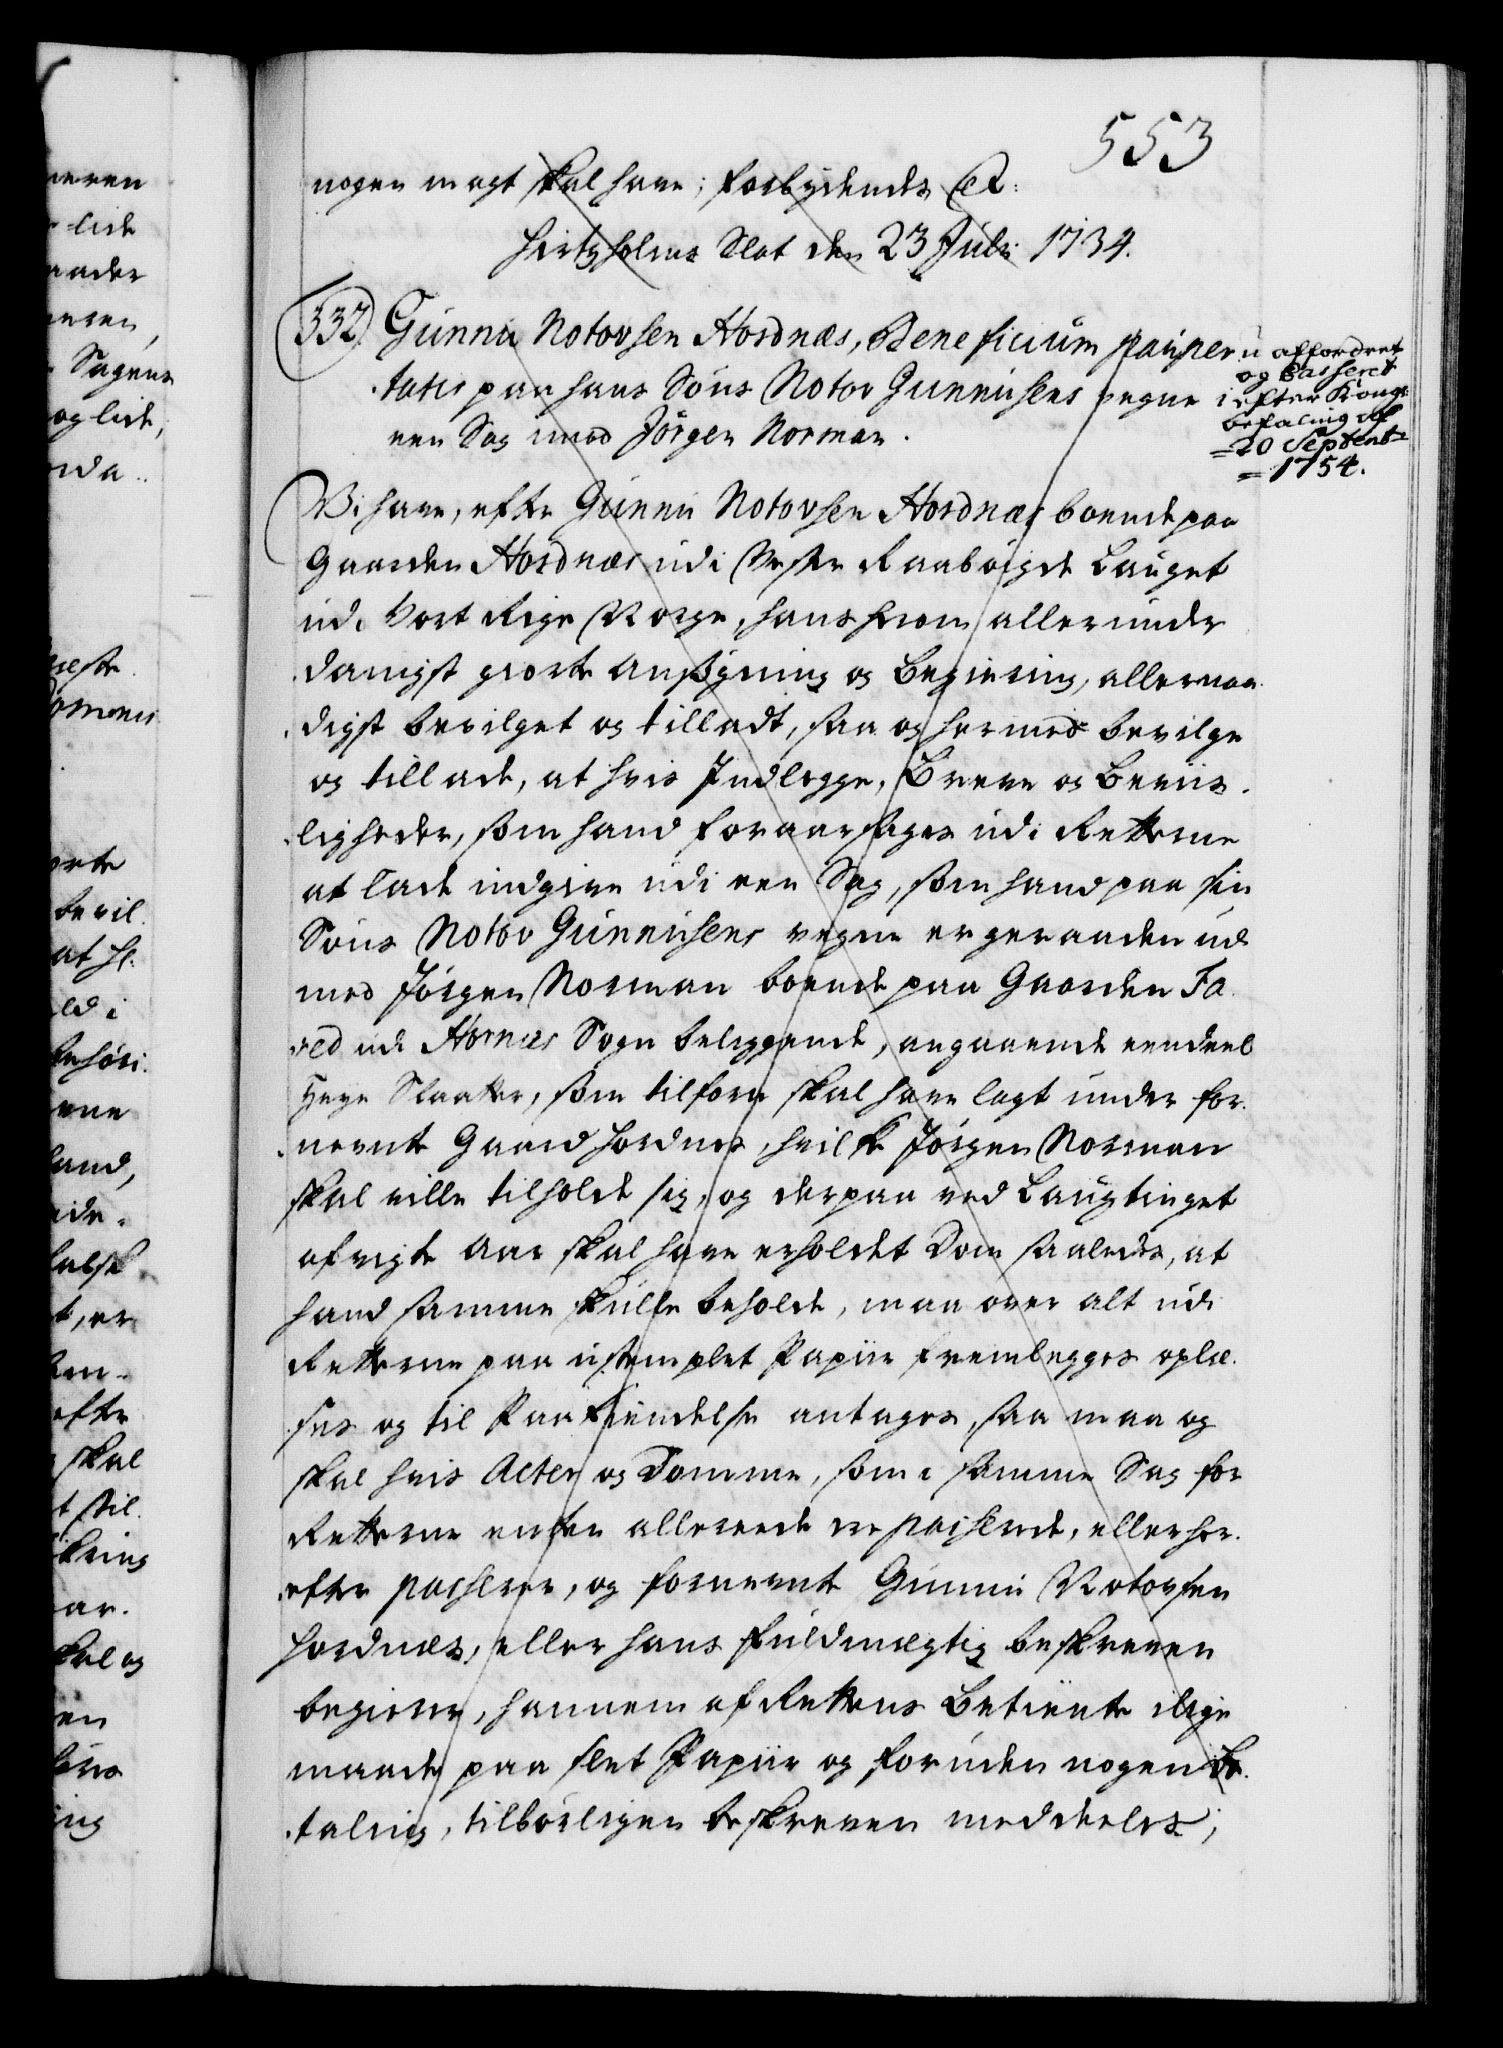 553
nogen magt skal have; forbydendes etc:
Hirtzholms Slot den 23 Juli 1734.
332 Gunnu Notovsen Hordnæs, Beneficium pauper
tatis paa hans Søns Notov Gunnusens vegne i
een Sag imod Jørgen Norman.
u affordret
og Casseret
efter Kongl:
befaling af
=20 Septemb=
=1754.
Vi have, efter Gunnu Notovsen Hordnæs boende paa
Gaarden Hordnæs udi Vester Raabøigde Lauget
udi Vort Rige Norge, hans herom allerunder
danigst giorte Ansøgning og Begiering, allernaa
digst bevilget og tilladt, saa og hermed bevilge
og tillade, at hvis Indlegge, Breve og Beviis
ligheder, som hand foraarsages udi Retterne
at lade indgive udi een Sag, som hand paa sin
Søns Notov Gunnusens vegne er geraaden udi
med Jørgen Norman boende paa Gaarden Fa
ved udi Hornes Sogn beliggende, angaaende eendeel
Høye Slaatter, som tilforn skal have lagt under for
nevnte Gaard Hordnes, hvilke Jørgen Norman
skal ville tilholde sig, og derpaa ved Laugtinget
afvigte Aar skal have erholdet Dom saaledes, at
hand samme skulle beholde, maa over alt udi
Retterne paa ustemplet Papiir fremlegges oplæ
ses og til Paakiendelse antages, saa maa og
skal hvis Acter og Domme, som i samme Sag for
Retterne enten allereede ere passerede, eller her
efter passerer, og fornevnte Gunnu Notovsen
Hordnæs, eller hans fuldmægtig beskreven
begierer, hannem af Rettens Betiente i lige
maade paa slet Papiir og foruden nogen be
taling, tilbørligen beskreven meddeeles;